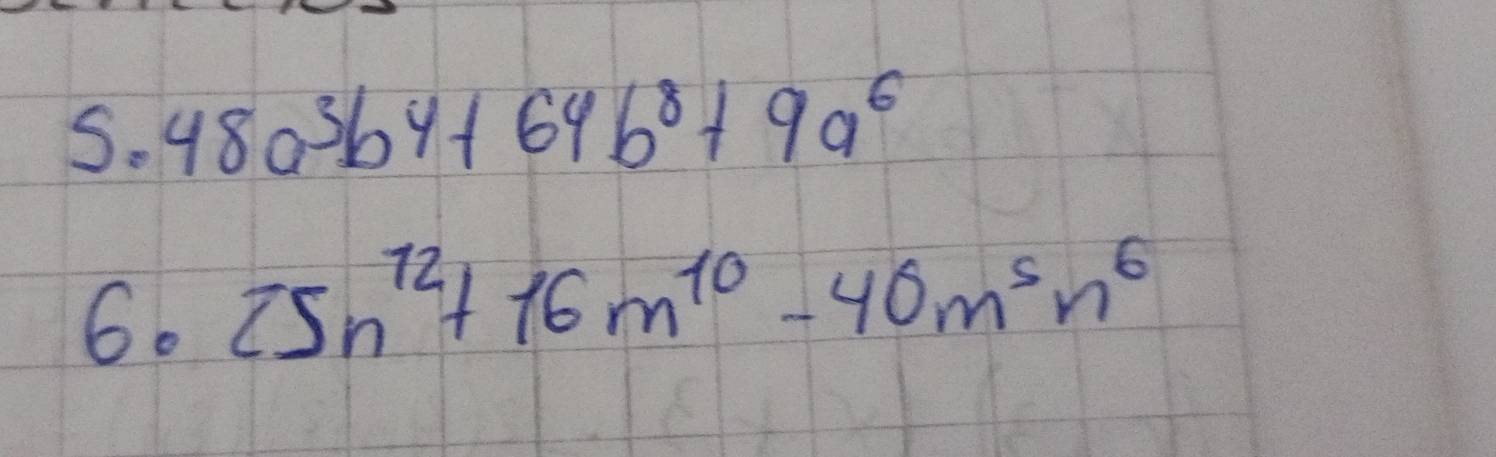 5. 48a³b⁴ + 64b⁸ + 9a⁶
6. 25n¹² + 16m¹⁰ - 40m⁵n⁶